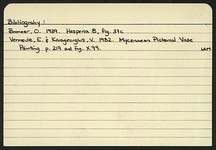 Bibliography:
Broneer, O. 1939. Hesperia 8, fig. 37c
Vermeule, E. & Karageorghis, V. 1982. Mycenaean Pictorial Vase
Painting p. 219 and fig. X.99.